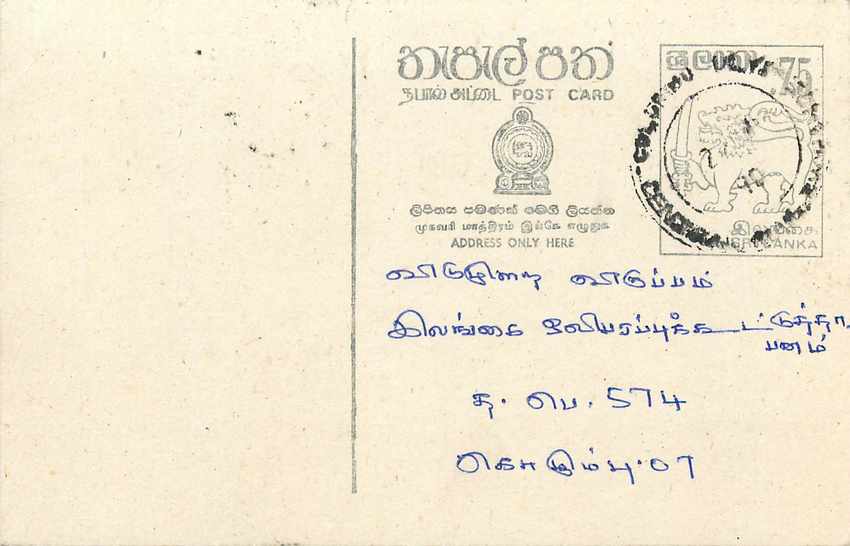 තැපැල් පත
தபால் அட்டை POST CARD
ලිපිනය පමණක් මෙහි ලියන්න
முகவரி மாத்திரம் இங்கே எழுதுக
ADDRESS ONLY HERE
ශ්‍රී ලංකා 75
இலங்கை
SRI LANKA
விடுமுறை விருப்பம்
இலங்கை ஒலிபரப்புக் கூட்டுத்தா
பனம்
த. பெ. 574
கொழும்பு.07